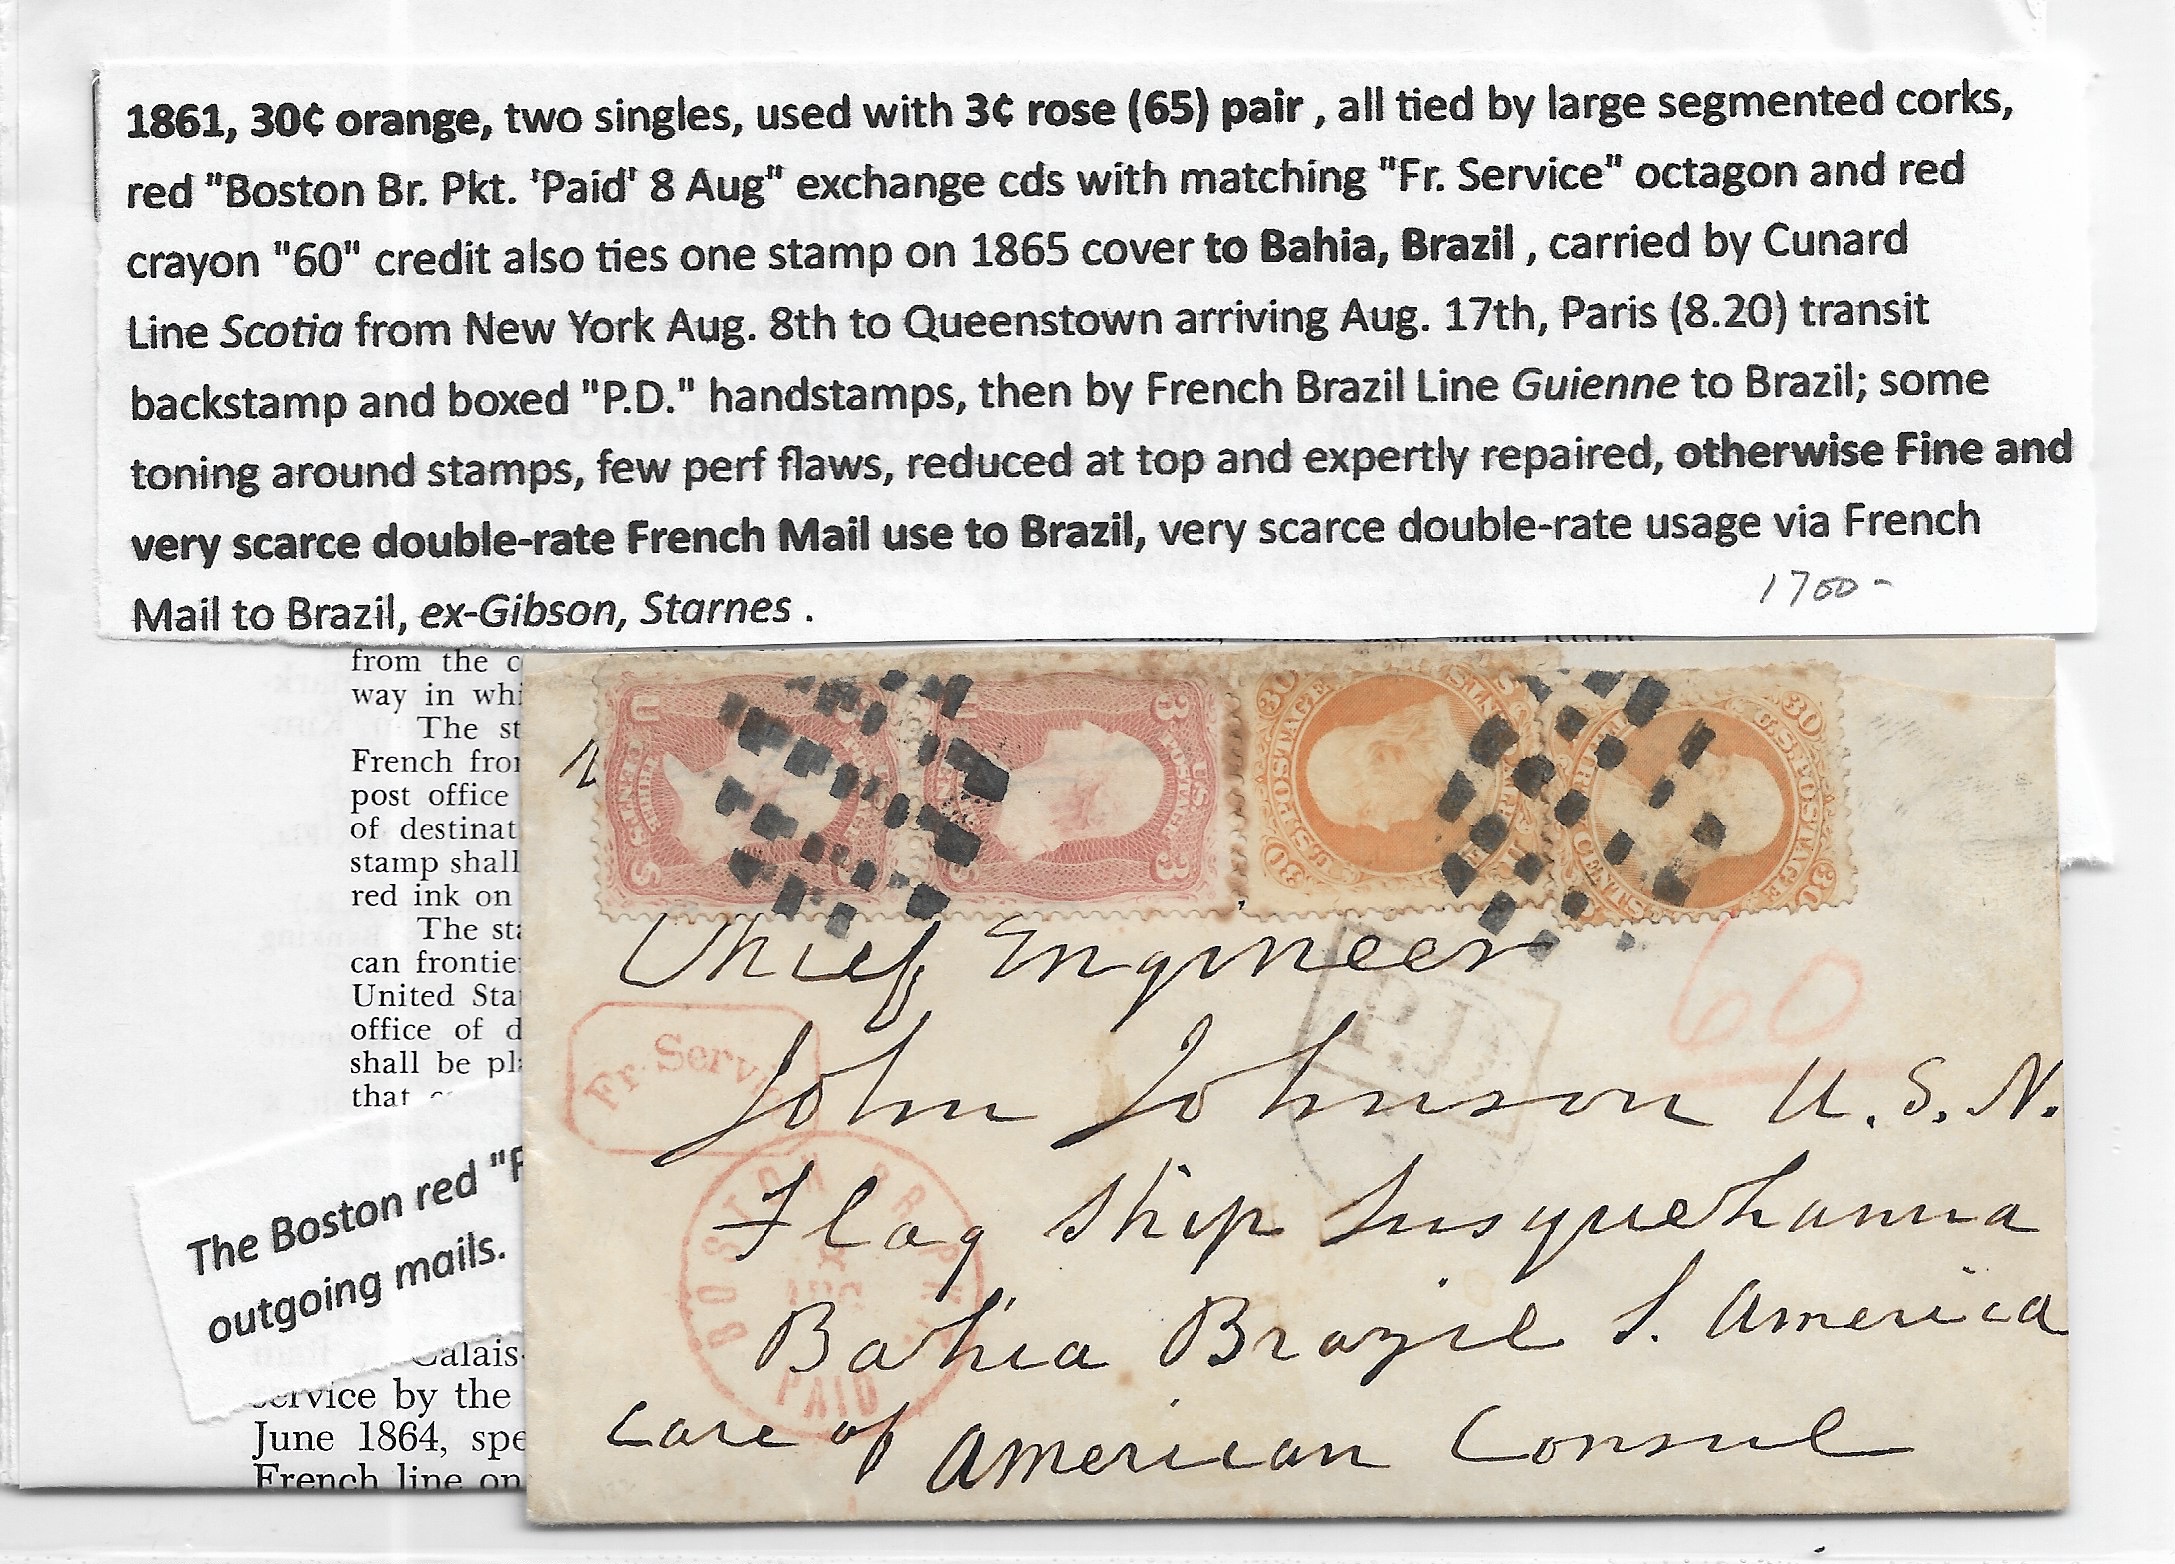 1861, 30¢ orange, two singles, used with 3¢ rose (65) pair , all tied by large segmented corks,
red "Boston Br. Pkt. 'Paid' 8 Aug" exchange cds with matching "Fr. Service" octagon and red
crayon "60" credit also ties one stamp on 1865 cover to Bahia, Brazil , carried by Cunard
Line Scotia from New York Aug. 8th to Queenstown arriving Aug. 17th, Paris (8.20) transit
backstamp and boxed "P.D." handstamps, then by French Brazil Line Guienne to Brazil; some
toning around stamps, few perf flaws, reduced at top and expertly repaired, otherwise Fine and
very scarce double-rate French Mail use to Brazil, very scarce double-rate usage via French
Mail to Brazil, ex-Gibson, Starnes .
1700-
from the c
way in whi
The st
French fro
post office
of destinat
stamp shall
red ink on
The sta
can frontie
United Sta
office of d
shall be pl
that
The Boston red "F
outgoing mails.
Calais-
service by the
June 1864, spe
French line on
U.S. POSTAGE
30
Chief Engineer
60
P.D.
Fr. Servi
John Johnson U.S.N.
Flag Ship Susquehanna
Bahia Brazil S. America
care of American Consul
BOSTON BR. PKT.
AUG
PAID